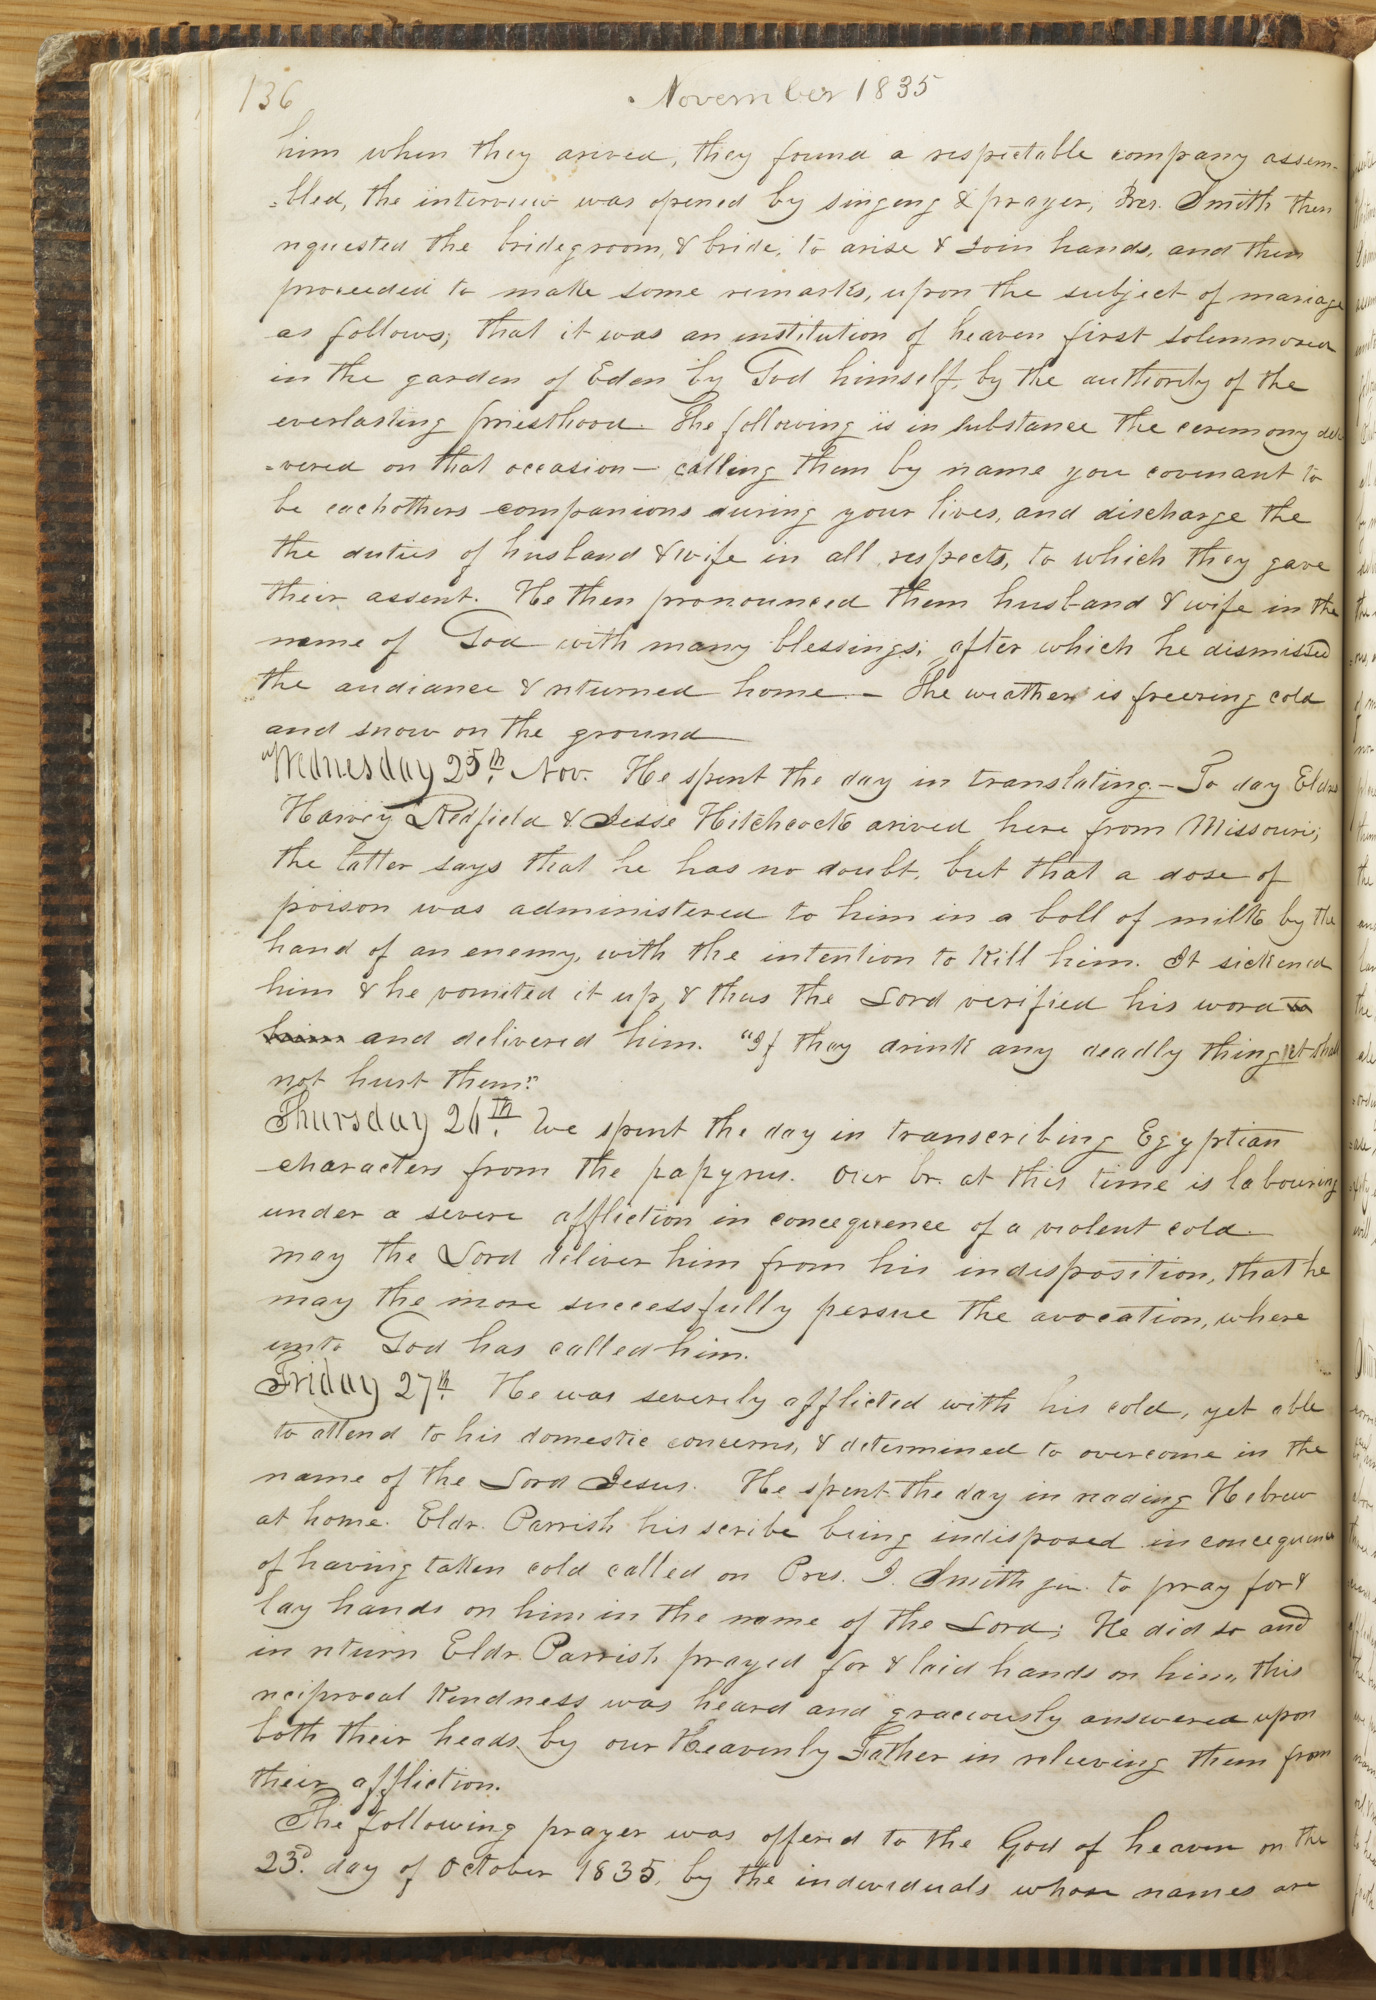 136 November 1835
him when they arived, they found a respectable company assem-
=bled, the interview was opened by singing & prayer, Pres. Smith then
requested the bridegroom, & bride, to arise & Join hands, and then
proceeded to make some remarks, upon the subject of mariage
as follows; that it was an institution of heaven first solemnized
in the garden of Eden by God himself, by the authority of the
everlasting priesthood. The following is in substance the ceremony deli
=vered on that occasion — calling them by name you covenant to
be eachothers companions during your lives, and discharge the
the duties of husband & wife in all respects, to which they gave
their assent. He then pronounced them husband & wife in the
name of God with many blessings; after which he dismissed
the audiance & returned home. — The weather is freezing cold
and snow on the ground
Wednesday 25th. Nov. He spent the day in translating. — To day Eldrs
Harvey Redfield & Jesse Hitchcock arived here from Missouri;
the latter says that he has no doubt, but that a dose of
poison was administered to him in a boll of milk by the
hand of an enemy, with the intention to kill him. It sickened
him & he vomited it up, & thus the Lord verified his word to
him and delivered him. "If they drink any deadly thing it shall
not hurt them."
Thursday 26th. We spent the day in transcribing Egyptian
characters from the papyrus. Our br. at this time is labouring
under a severe affliction in concequence of a violent cold.
may the Lord deliver him from his indisposition, that he
may the more successfully persue the avocation, where
unto God has called him.
Friday 27th. He was severely afflicted with his cold, yet able
to attend to his domestic concerns, & determined to overcome in the
name of the Lord Jesus. He spent the day in reading Hebrew
at home. Eldr. Parrish his scribe being indisposed in concequence
of having taken cold called on Pres. J. Smith jun. to pray for &
lay hands on him in the name of the Lord; He did so and
in return Eldr Parrish prayed for & laid hands on him, this
reciprocal kindness was heard and graciously answered upon
both their heads by our Heavenly Father in relieving them from
their affliction.
The following prayer was offered to the God of heaven on the
23d. day of October 1835, by the individuals whose names are